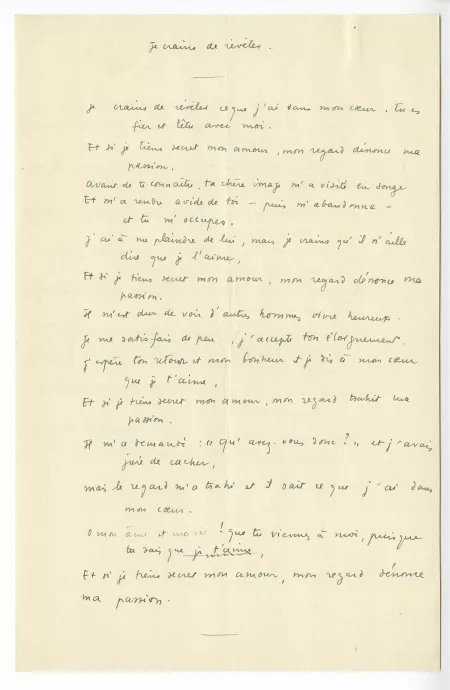 Je crains de révéler.
Je crains de révéler ce que j'ai dans mon cœur. Tu es
fier et têtu avec moi.
Et si je tiens secret mon amour, mon regard dénonce ma
passion.
avant de te connaître, ta chère image m'a visité en songe
Et m'a rendu avide de toi – puis m'abandonna –
et tu m'occupes.
J'ai à me plaindre de lui, mais je crains qu'il n'aille
dire que je l'aime,
Et si je tiens secret mon amour, mon regard dénonce ma
passion.
Il m'est dur de voir d'autres hommes vivre heureux.
Je me satisfais de peu, j'accepte ton éloignement.
J'espère ton retour et mon bonheur et je dis à mon cœur
que je t'aime,
Et si je tiens secret mon amour, mon regard trahit ma
passion.
Il m'a demandé : "Qu'avez-vous donc ?" et j'avais
juré de cacher,
mais le regard m'a trahi et il sait ce que j'ai dans
mon cœur.
O mon âme et ma vie ! que tu viennes à moi, puisque
tu sais que je t'aime,
Et si je tiens secret mon amour, mon regard dénonce
ma passion.